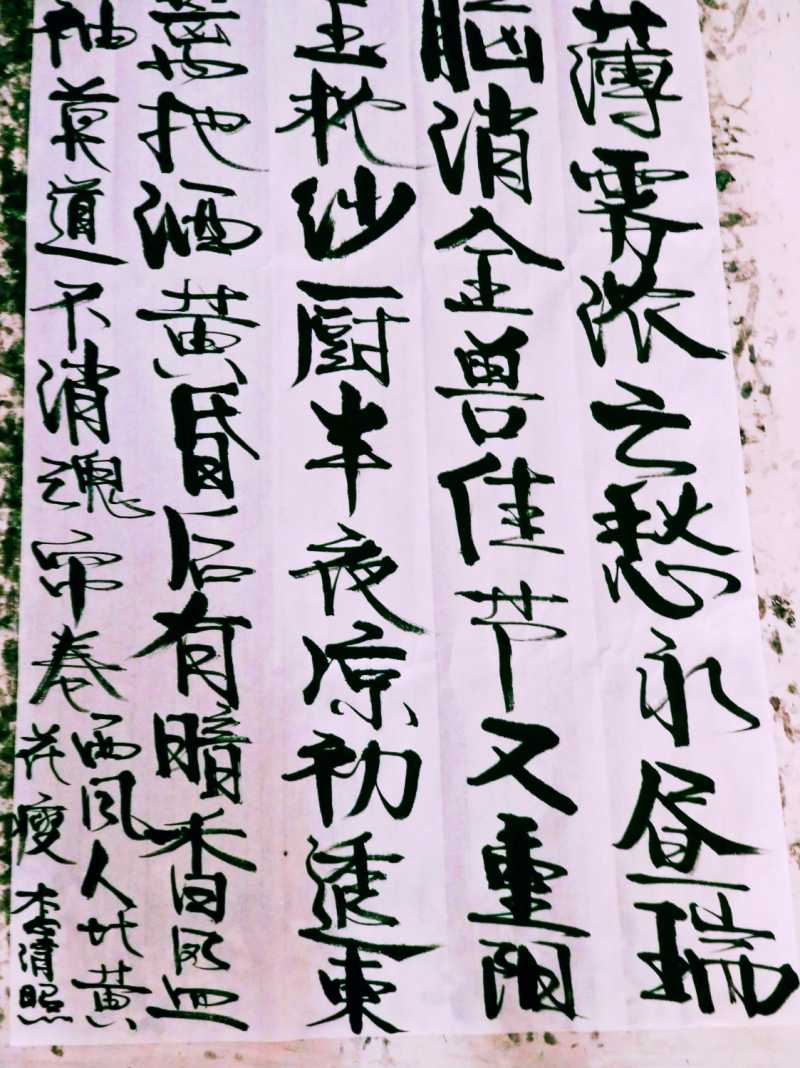 薄雾浓云愁永昼瑞
脑消金兽佳节又重阳
玉枕纱厨半夜凉初透東
篱把酒黄昏后有暗香盈
袖莫道不消魂帘卷西风人比黄
花瘦 李清照